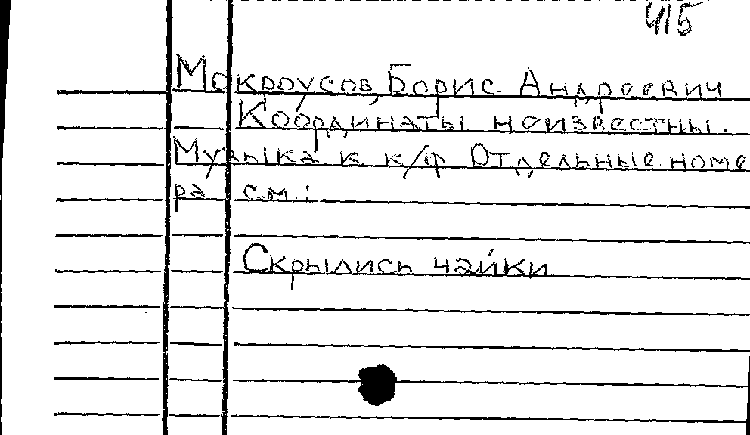 415
Мокроусов, Борис Андреевич
Координаты неизвестны.
Музыка к к/ф Отдельные номе
ра см.:
Скрылись чайки